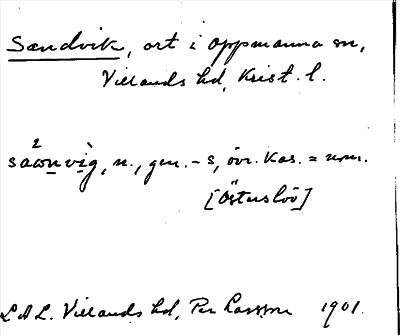 Sandvik, ort i Oppmanna sn,
Villands hd, Krist. l.
2
sawnvìg, n., gen. -s, övr. kas. = nom.
[Österslöv]
LAL. Villands hd, Per Larsson 1901.